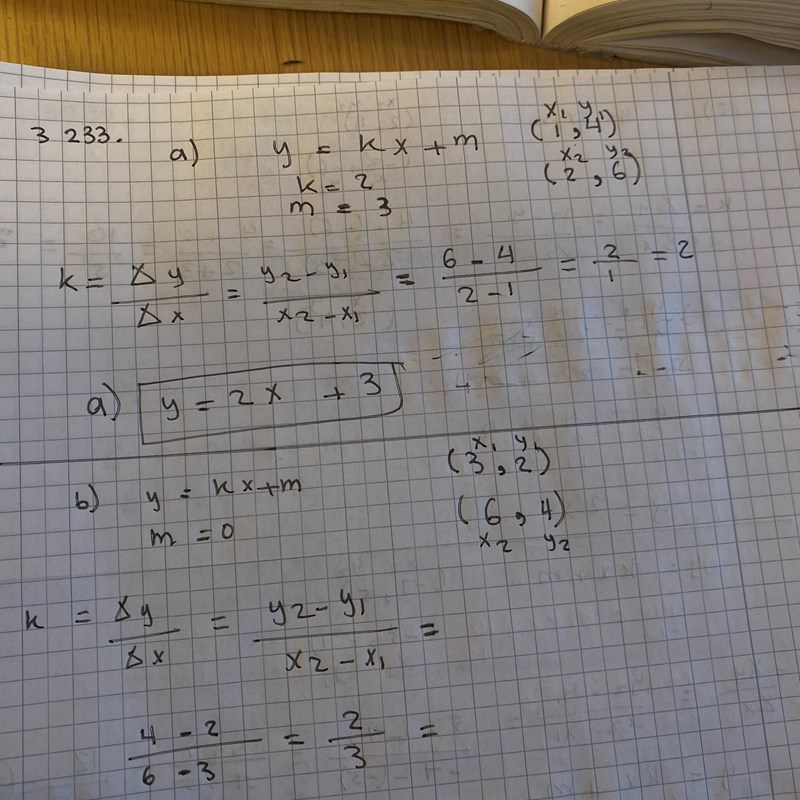 3 233. a) y = kx + m (1, 4)
x₁ y₁
k = 2 (2, 6)
x₂ y₂
m = 3
k = Δy/Δx = (y2 - y1)/(x2 - x1) = (6 - 4)/(2 - 1) = 2/1 = 2
a) y = 2x + 3
b) y = kx + m (3, 2)
x₁ y₁
m = 0 (6, 4)
x2 y2
k = Δy/Δx = (y2 - y1)/(x2 - x1) =
(4 - 2)/(6 - 3) = 2/3 =